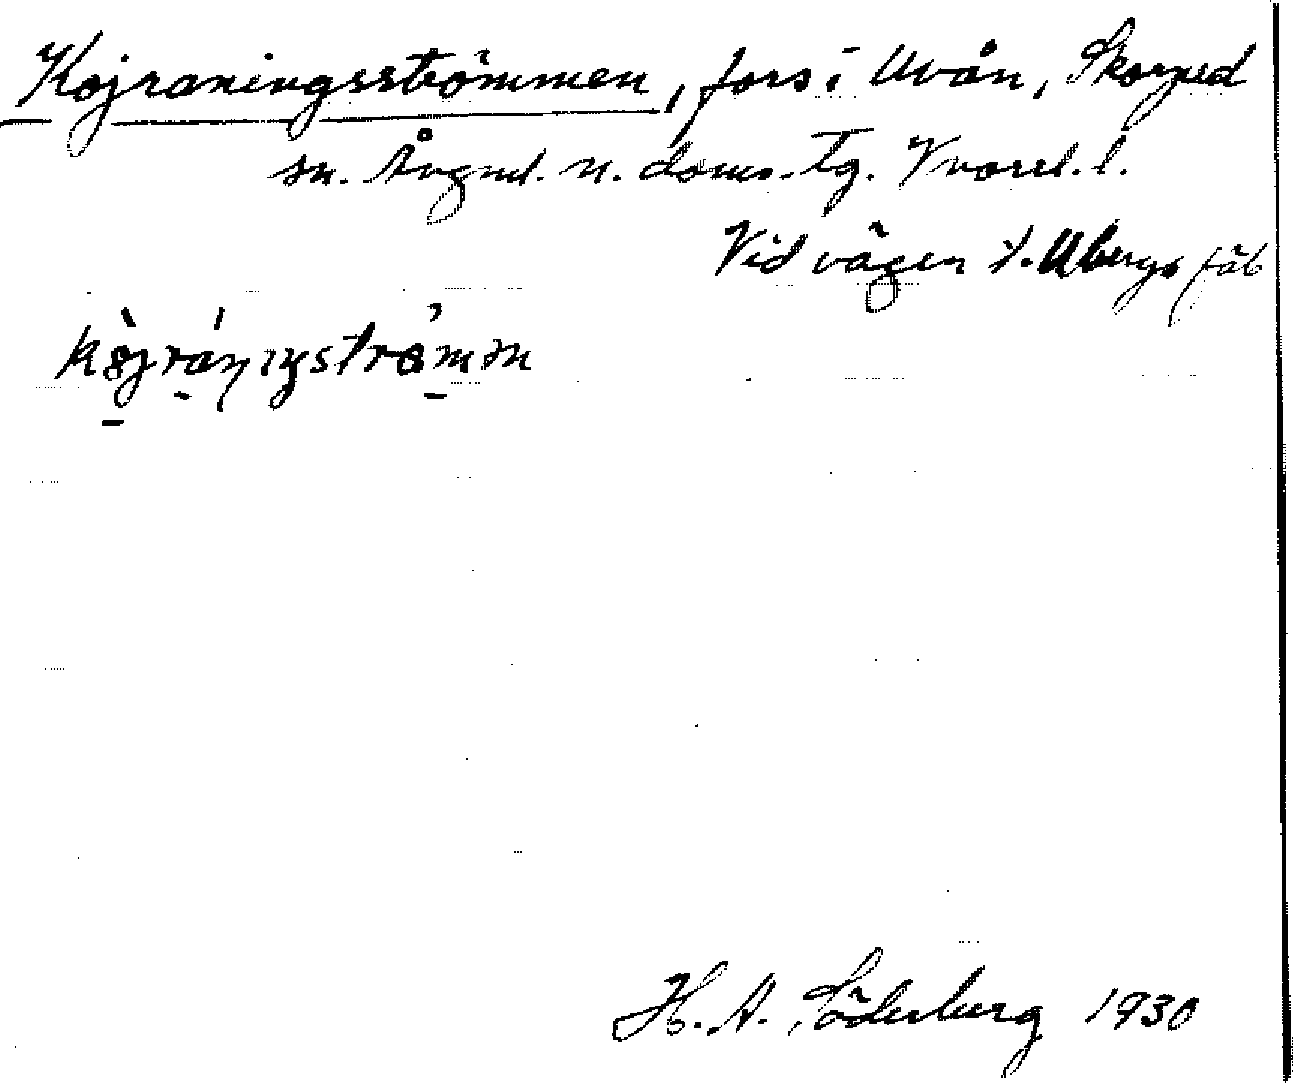 Kojraningsströmmen, fors i Uvån, Skorped
sn. Ångml. n. doms. tg. Vnorrl. l.
Vid vägen t. Ubergs fäb
kòjráŋiŋstrǿmm
H. A. Söderberg 1930